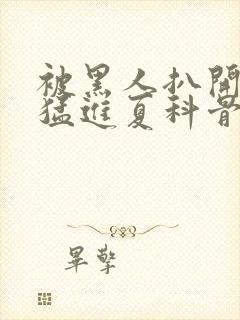 被黑人扒開
猛進夏科普
畢擎